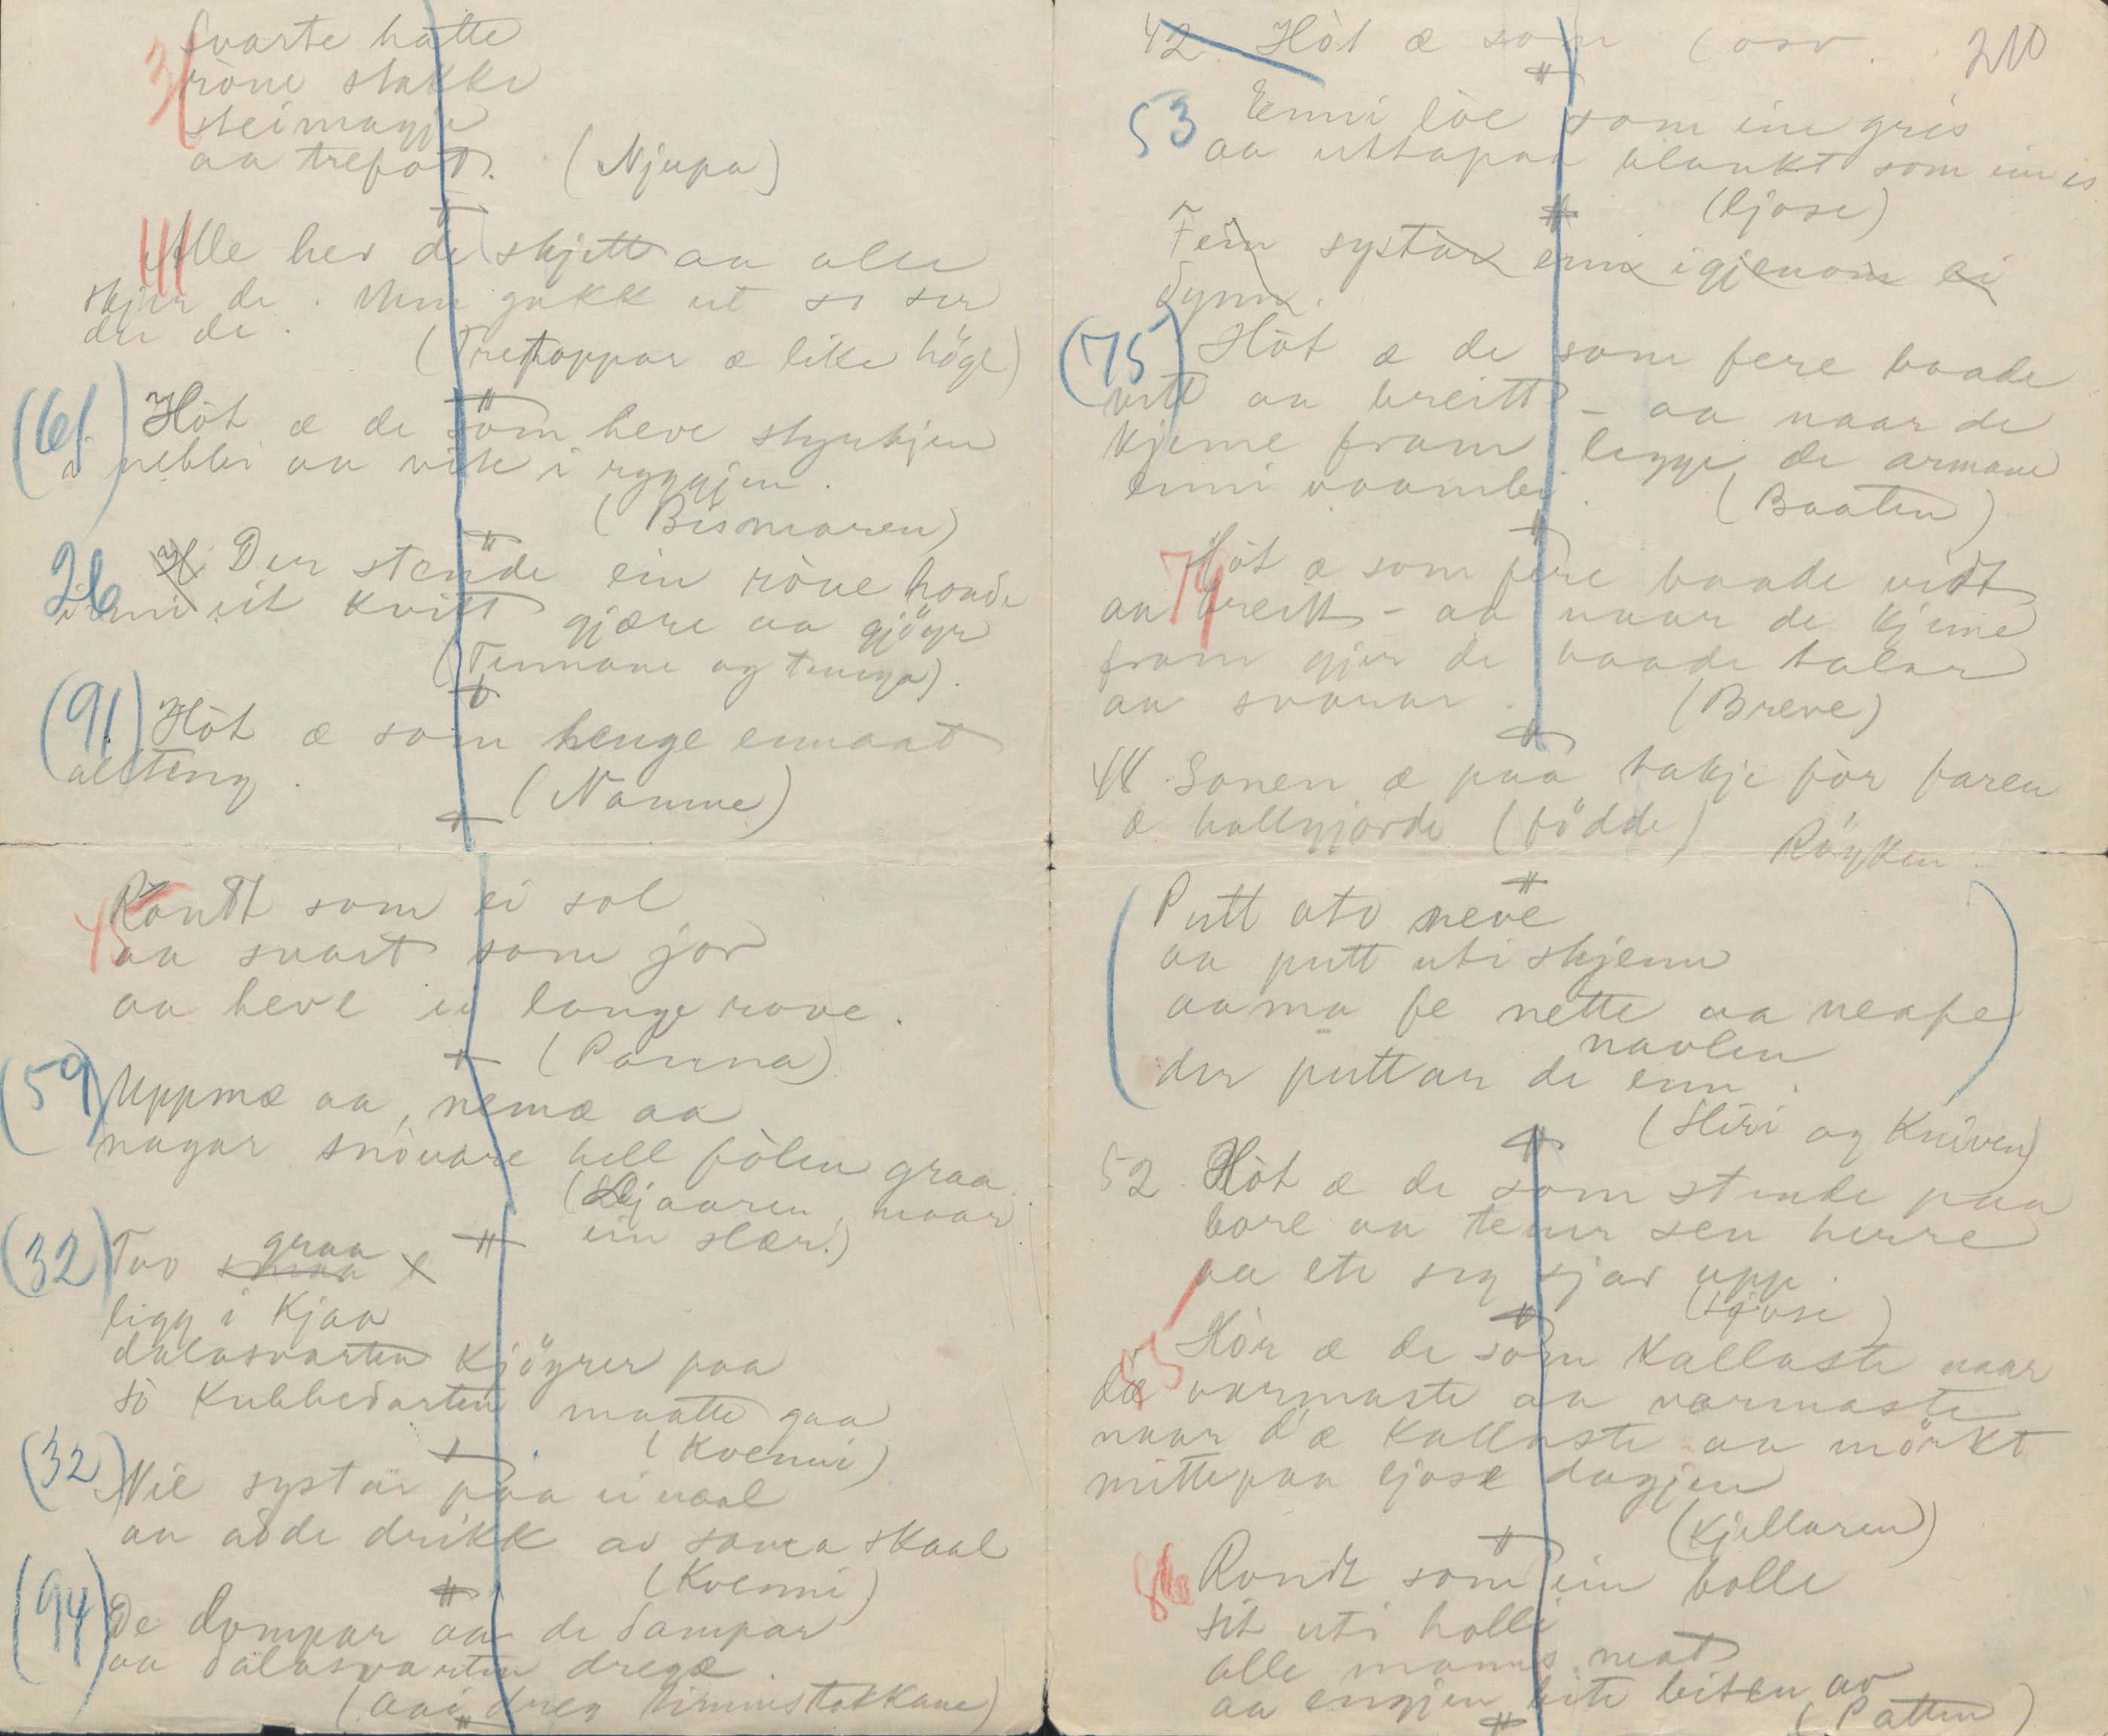 Svarte hatte
31 röne stakke
steimagje
aa trefot. (Njupa)
111 Alle hev de skjett aa alle
skjer de. Men gakk ut so ser
du de.
(Tretoppar æ like högl)
(61.) Hòt æ de som heve styrkjen
i nebbi aa vite i ryggjen.
(Bismaren)
26 Der stende ein röne honde
inni eit kvitt gjære aa gjöyr
(Tennane og tunga).
(91.) Hòt æ som henge ennaat
allting.
(Namne)
45 Rondt som ei sol
aa svart som jor
aa heve ei lange rove.
(Panna)
(59) Uppmæ aa, nemæ aa
nagar snòvare hell fòlen graa
(Ljaaren, naar
ein slær.)
(32) Tvo graa
ligg i Kjaa
dalasvarten Kjöyrer paa
so Kubbedarten maatte gaa
(Kvenni)
(32) Nie systär paa ei naal
aa adde drikk av sama skaal
(Kvenni)
(94) De dompar aa de dampar
aa dalasvarten drege.
(aai dreg timmistokkane)
42. Hòt æ som (osv. 210
53 Enni löe som ein gris
aa uttapaa blankt som ein is
(ljose)
Fem systär enn igjenom ei
dynn.
(75) Hòt æ de som fere baade
vitt aa breitt – aa naar de
Kjeme fram legge de armane
enni vaambei.
(Baaten)
74 Hòt æ som fere baade vidt
aa breitt – aa naar de kjeme
fram gjer de baade talar
aa svarar.
(Breve)
44 Sonen æ paa takje fòr faren
æ hallgjorde (födde) Röyken.
Putt ato neve
aa putt uti skjenn
aa ma fe nette aa neafe
navlen
der puttar de enn.
(Sliri og Kniven)
52. Hòt æ de som stende paa
bore aa tener sen herre
aa ete seg sjav upp.
(Ljose)
Hòr æ de som Kallaste naar
dæ varmaste aa varmaste
naar d'æ Kallaste aa mörkt
mittepaa ljose dagjen
(Kjellaren)
86 Rondt som ein bolle
sit uti holli
alle manns mat
aa engjen bite biten av
(Patten)